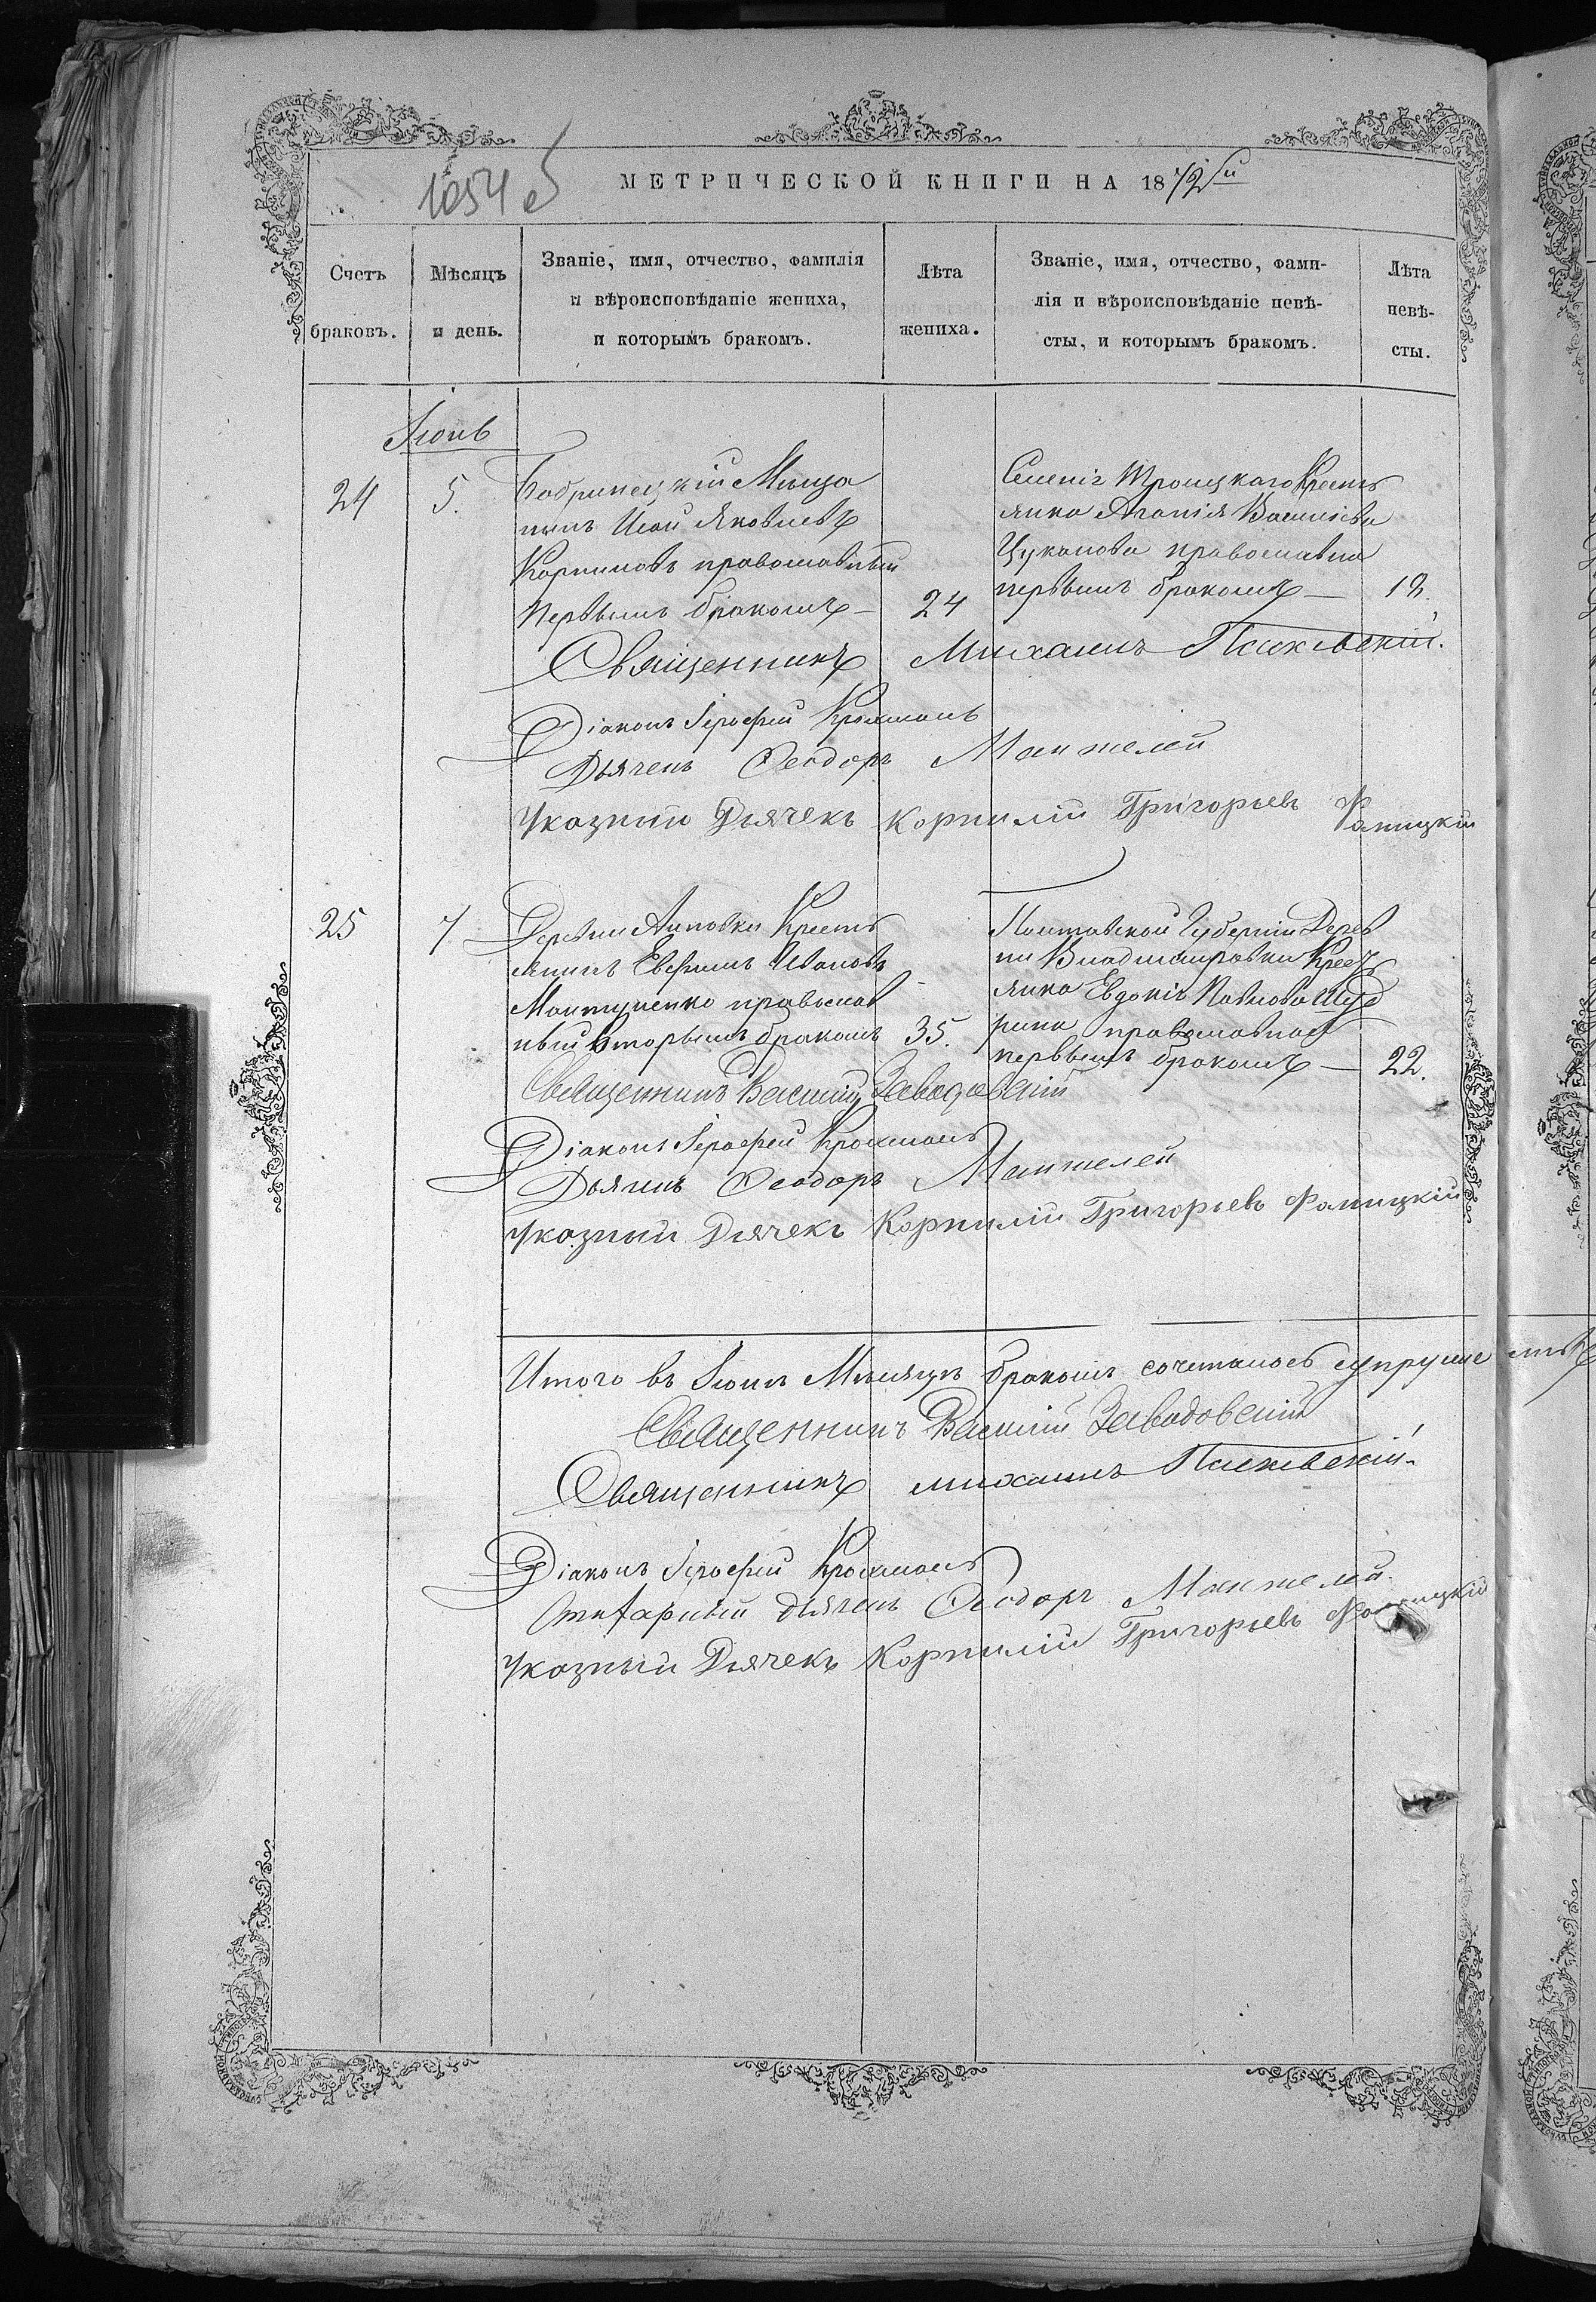 1054 б
МЕТРИЧЕСКОЙ КНИГИ НА 1872й
Счетъ браковъ.
Мѣсяцъ и день.
Званіе, имя, отчество, фамилія и вѣроисповѣданіе жениха, и которымъ бракомъ.
Лѣта жениха.
Званіе, имя, отчество, фамилія и вѣроисповѣданіе невѣсты, и которымъ бракомъ.
Лѣта невѣсты.
Іюнь
24
5.
Бобринецкій Мѣща
нинъ Исай Яковлевъ
Корниловъ православный
Первымъ бракомъ
24
Селенія Троицкаго Крестъ
янка Агапія Васильева
Цуканова православна
первымъ бракомъ
18.
Священникъ Михаилъ
Діаконъ Іерофей
Дьячекъ Ѳеодоръ Манжелей
Указный Дьячекъ Корнилій Григорьевъ Фаницкій
25
7
Деревни Антовки Кресть
янинъ Евфимъ Ивановъ
Мантуленко православ
ный вторымъ бракомъ
35.
Полтавской Губерніи Дерев
ни Владимировки Кресть
янка Евдокія Павлова
православная
первымъ бракомъ
22.
Священникъ Василій Заводовскій
Діаконъ Іерофей
Дьячекъ Ѳеодоръ Манжелей
Указный Дьячекъ Корнилій Григорьевъ Фаницкій
Итого въ Іюнѣ Мѣсяцѣ бракомъ сочеталось супруже
Священникъ Василій Заводовскій
Священникъ Михаилъ
Діаконъ Іерофей
Дьячекъ Ѳеодоръ Манжелей.
Указный Дьячекъ Корнилій Григорьевъ Фаницкій